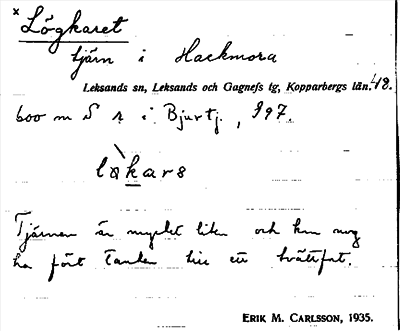 x Lögkaret
tjärn i Hackmora
Leksands sn, Leksands och Gagnefs tg, Kopparbergs län. 48.
600 m S i Bjurtj., 997.
Tjärnen är mycket liten och kan nog
ha fört tanken till ett tvättfat.
ERIK M. CARLSSON, 1935.